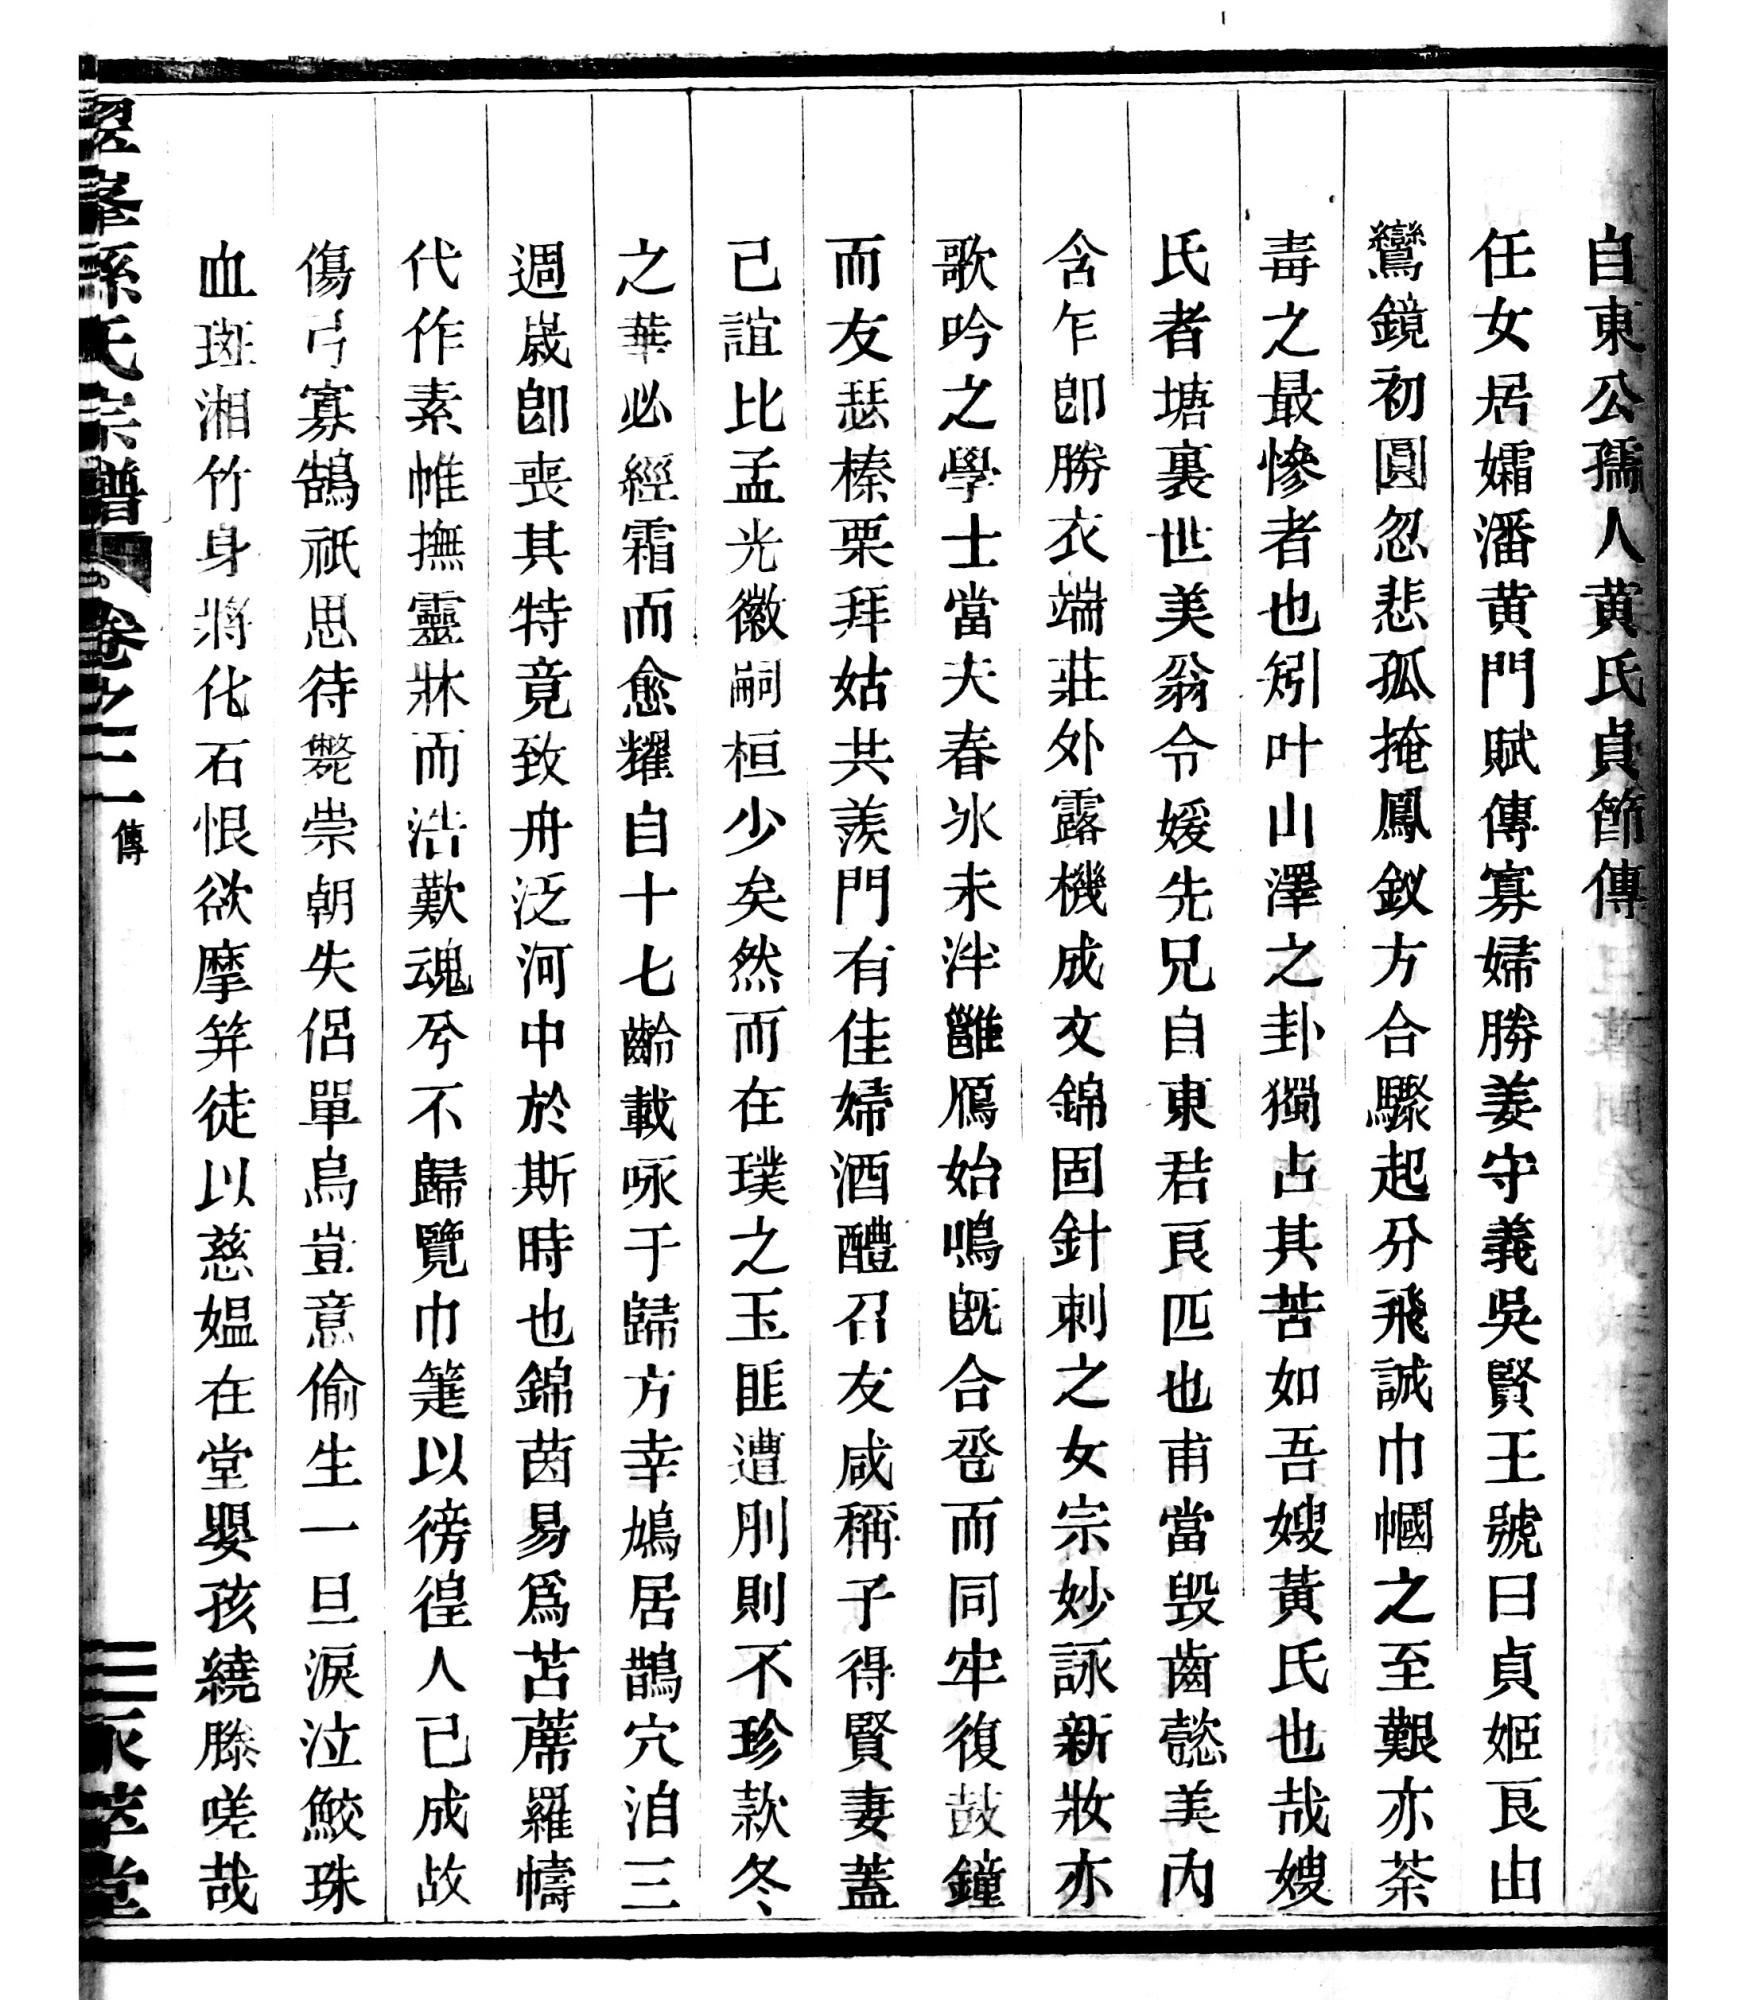 自東公孺人黃氏貞節傳
任女居孀潘黃門賦傳寡婦勝姜守義吳賢王號曰貞姬良由
鸞鏡初圓忽悲孤掩鳳釵方合驟起分飛誠巾幗之至艱亦荼
毒之最慘者也矧叶山澤之卦獨占其苦如吾嫂黃氏也哉嫂
氏者塘裏世美翁令媛先兄自東君良匹也甫當毀齒懿美內
含乍卽勝衣端莊外露機成文錦固針刺之女宗妙詠新妝亦
歌吟之學士當夫春氷未泮雝鴈始鳴旣合巹而同牢復鼓鐘
而友瑟榛栗拜姑共羨門有佳婦酒醴召友咸稱子得賢妻蓋
已誼比孟光徽嗣桓少矣然而在璞之玉匪遭刖則不珍款冬
之華必經霜而愈耀自十七齡載咏于歸方幸鳩居鵲穴洎三
週嵗卽喪其特竟致舟泛河中於斯時也錦茵易爲苫蓆羅幬
代作素帷撫靈牀而浩歎魂兮不歸覽巾箑以徬徨人已成故
傷弓寡鵠祇思待斃崇朝失侶單鳥豈意偷生一旦淚泣鮫珠
血斑湘竹身將化石恨欲摩笄徒以慈媼在堂嬰孩繞膝嗟哉
翌峯孫氏宗譜 卷之二 傳 三 永萃堂